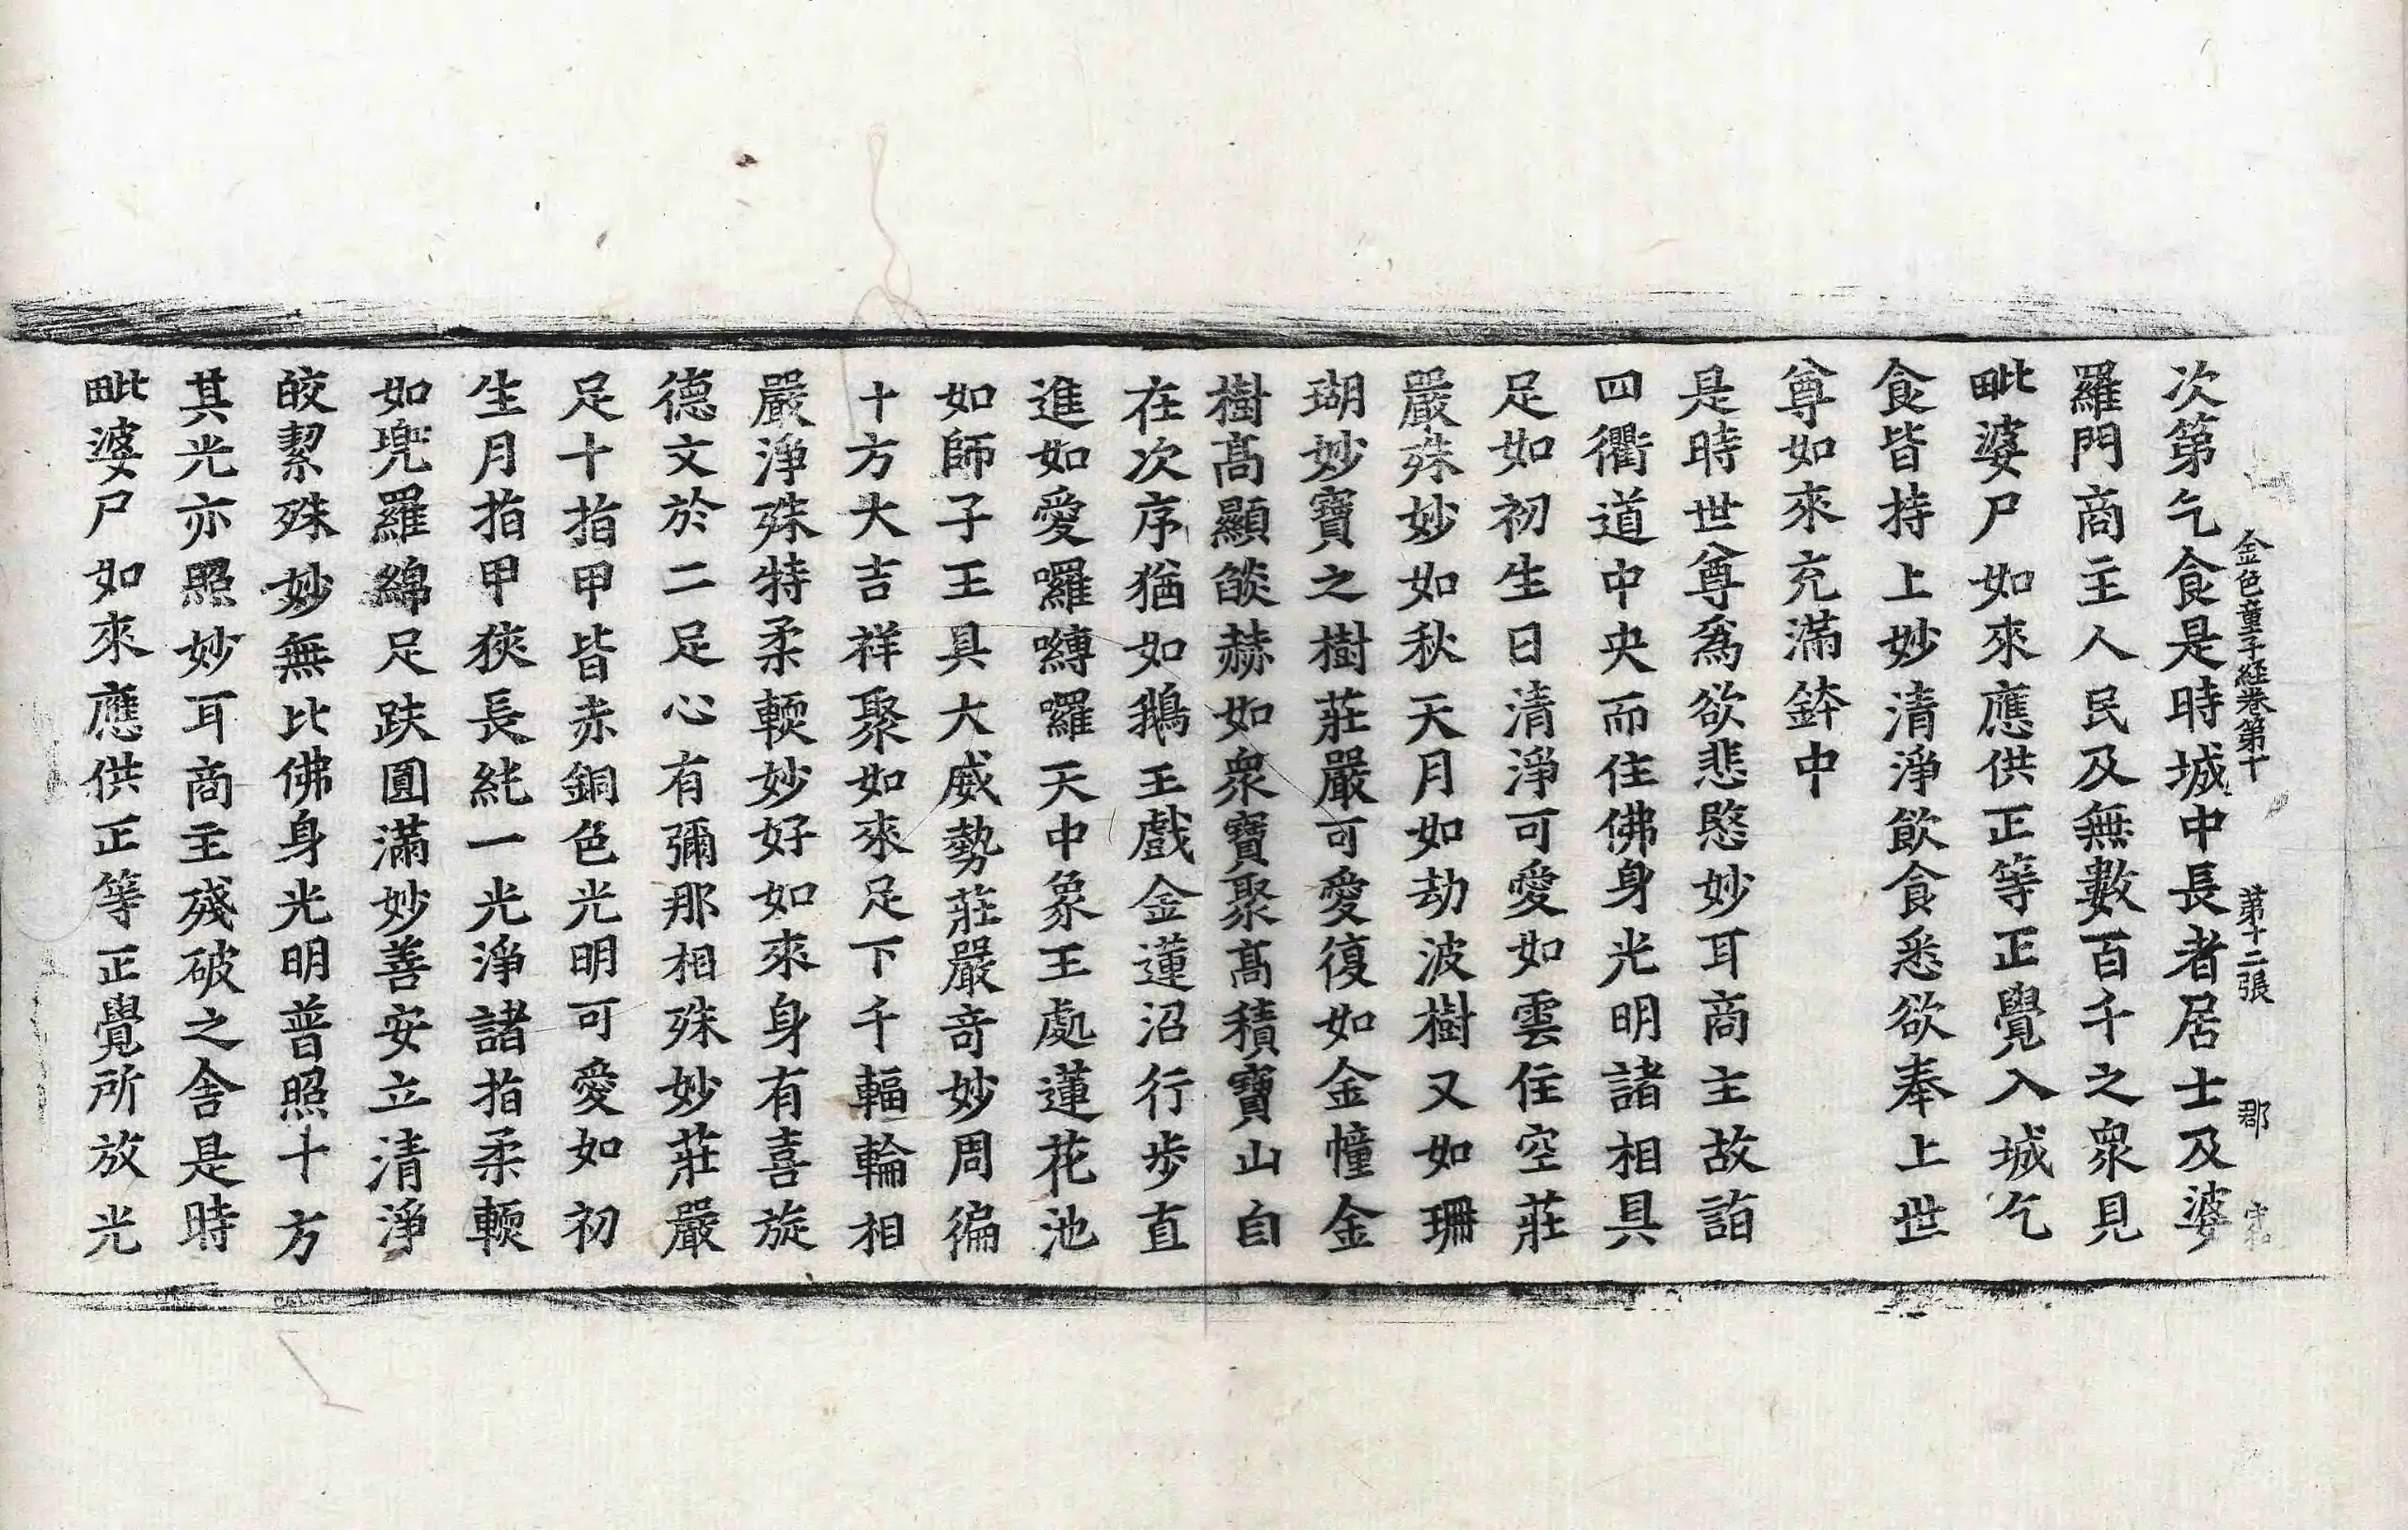 金色童子経卷第十 第十二張 郡
次第乞食是時城中長者居士及婆
羅門商主人民及無數百千之衆見
毗婆尸如來應供正等正覺入城乞
食皆持上妙清淨飲食悉欲奉上世
尊如來充滿鉢中
是時世尊爲欲悲愍妙耳商主故詣
四衢道中央而住佛身光明諸相具
足如初生日清淨可愛如雲住空莊
嚴殊妙如秋天月如劫波樹又如珊
瑚妙寶之樹莊嚴可愛復如金幢金
樹髙顯燄赫如衆寶聚髙積寶山自
在次序猶如鵝王戲金蓮沼行步直
進如愛囉嚩囉天中象王處蓮花池
如師子王具大威勢莊嚴竒妙周徧
十方大吉祥聚如來足下千輻輪相
嚴淨殊特柔輭妙好如來身有喜旋
德文於二足心有彌那相殊妙莊嚴
足十指甲皆赤銅色光明可愛如初
生月指甲狹長純一光淨諸指柔輭
如兠羅綿足趺圓滿妙善安立清淨
皎潔殊妙無比佛身光明普照十方
其光亦照妙耳商主殘破之舍是時
毗婆尸如來應供正等正覺所放光